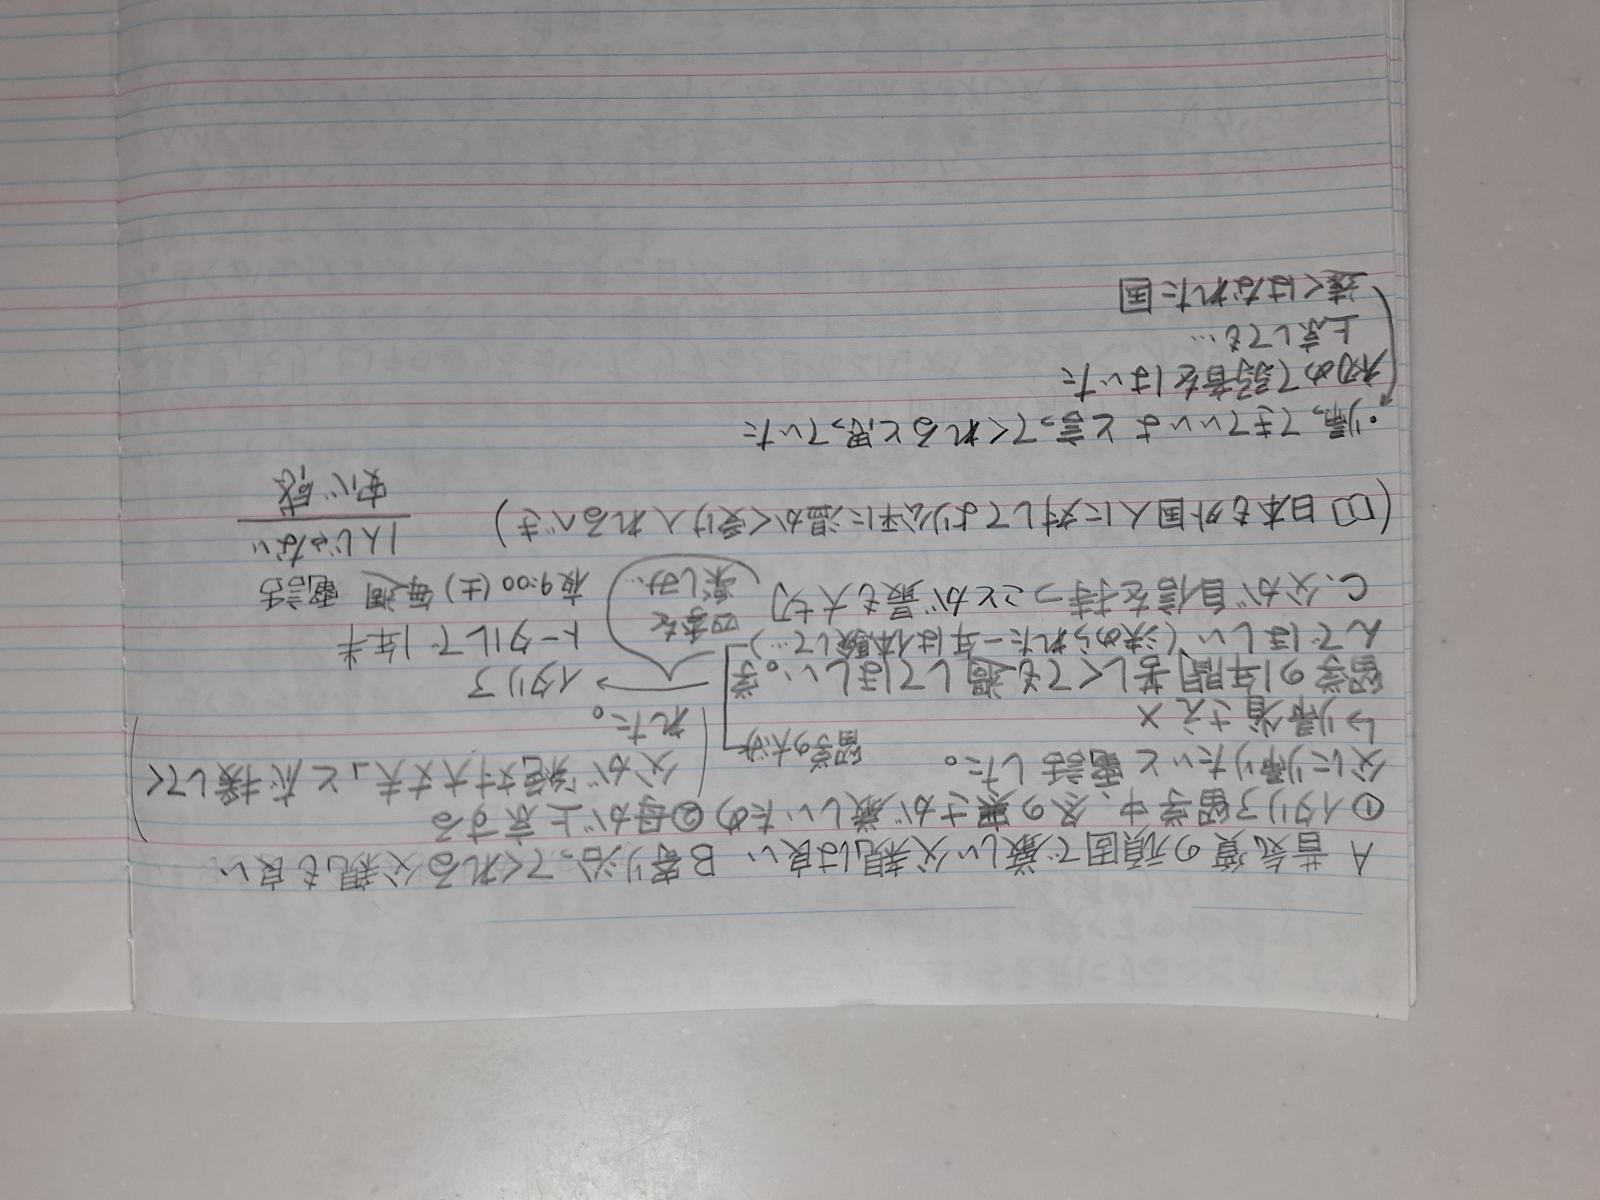 A 昔気質の頑固で厳しい父親は良い B 寄り沿ってくれる父親も良い
①イタリア留学中、冬の寒さが厳しいため ②母が上京する
父に帰りたいと電話した。
父が「絶対大丈夫」と応援してく
れた。
↳帰省さえ×
留学の大沙
留学の1年間苦しくても過ごしてほしい。学
イタリア
んでほしい(決められた一年は体験して…)
トータルで1年半
四季を
楽しみ…
C. 父が自信を持つことが最も大切
夜9:00 (土) 毎週 電話
1人じゃない
安心感
(□ 日本も外国人に対してより公平に温かく受け入れるべき)
・帰ってきていいよと言ってくれると思っていた
初めて弱音をはいた
上京しても…
遠くはなれた国